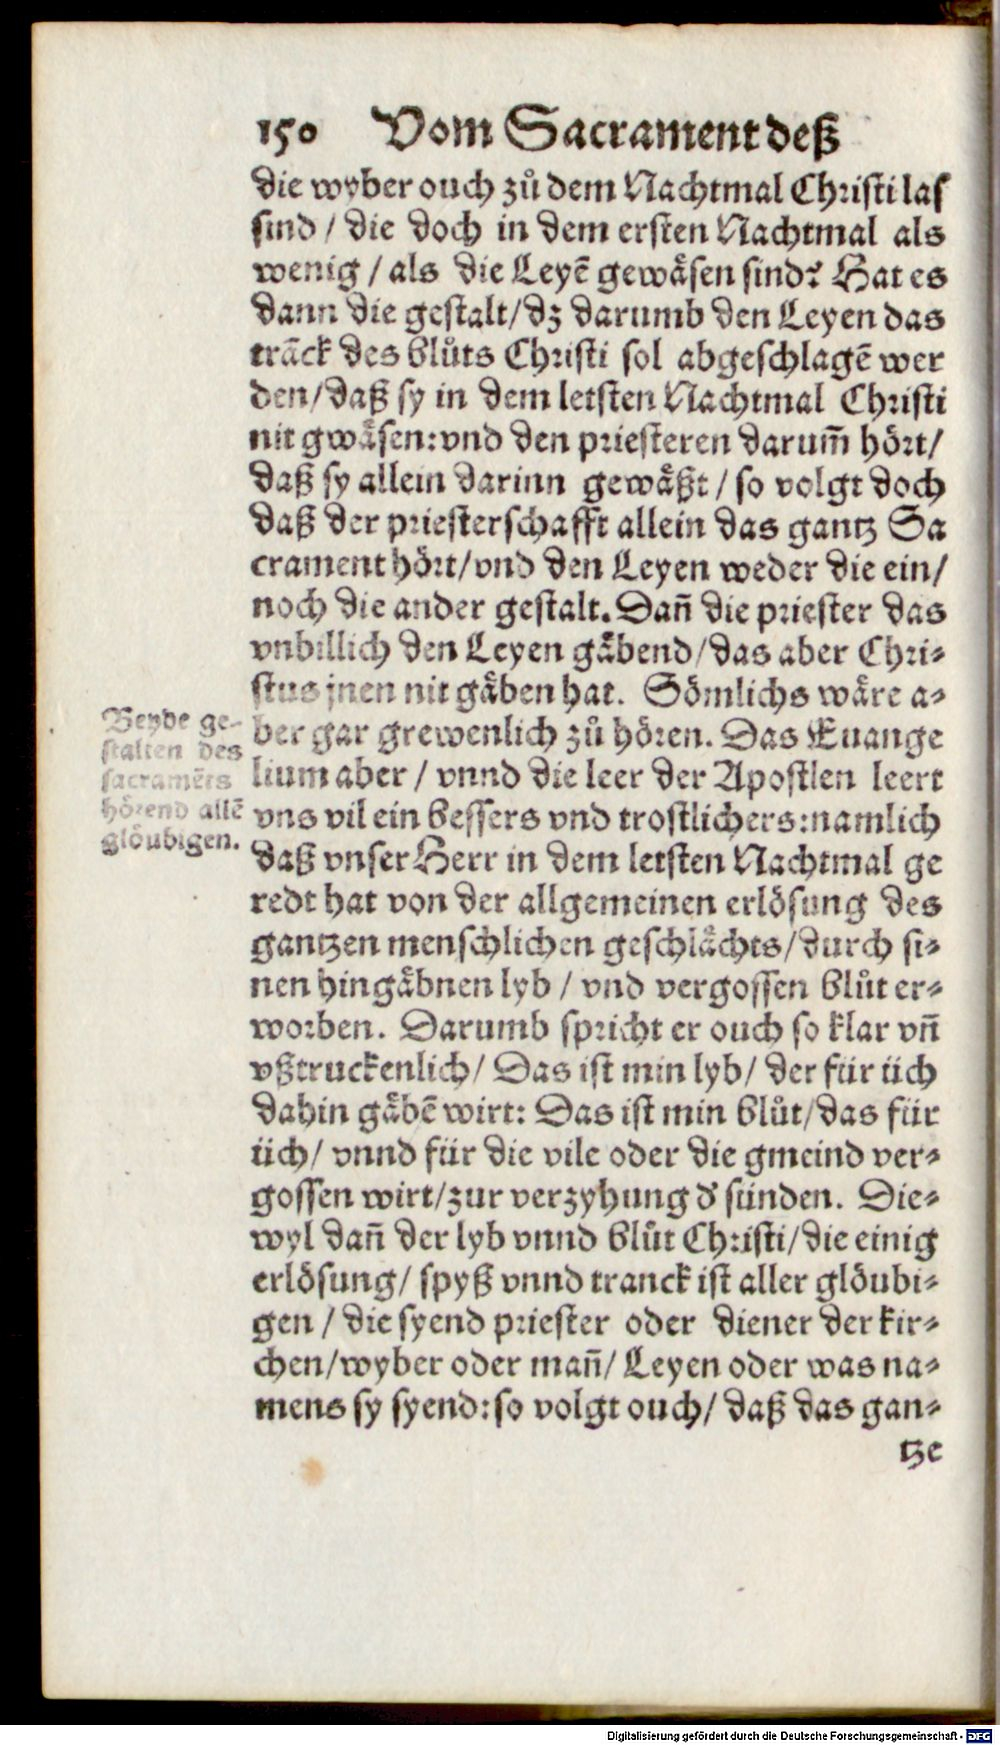 150 Vom Sacrament deß
die wyber ouch zů dem Nachtmal Christi laſ
sind / die doch in dem ersten Nachtmal als
wenig / als die Leyē gewåsen sind? Hat es
dann die gestalt/dz darumb den Leyen das
trāck des blůts Christi sol abgeschlagē wer
den/daß sy in dem letsten Nachtmal Christi
nit gwåsen: vnd den priesteren darum̄ hört/
daß sy allein darinn gewåßt / so volgt doch
daß der priesterschafft allein das gantz Sa
crament hört/vnd den Leyen weder die ein/
noch die ander gestalt. Dan̄ die priester das
vnbillich den Leyen gåbend/das aber Chri-
stus jnen nit gåben hat. Sömlichs wåre a-
ber gar grewenlich zů hören. Das Euange
lium aber / vnnd die leer der Apostlen leert
vns vil ein bessers vnd trostlichers: namlich
daß vnser Herr in dem letsten Nachtmal ge
redt hat von der allgemeinen erlösung des
gantzen menschlichen geschlåchts/durch si-
nen hingåbnen lyb / vnd vergossen blůt er-
worben. Darumb spricht er ouch so klar vn̄
vßtruckenlich/ Das ist min lyb/ der für üch
dahin gåbē wirt: Das ist min blůt/das für
üch/ vnnd für die vile oder die gmeind ver-
gossen wirt/zur verzyhung d' sünden. Die-
wyl dan̄ der lyb vnnd blůt Christi/die einig
erlösung/ spyß vnnd tranck ist aller glöubi-
gen / die syend priester oder diener der kir-
chen/wyber oder man̄/ Leyen oder was na-
mens sy syend: so volgt ouch/ daß das gan-
tze
Beyde ge-
stalten des
sacramēts
hörend allē
glöubigen.
Digitalisierung gefördert durch die Deutsche Forschungsgemeinschaft - DFG